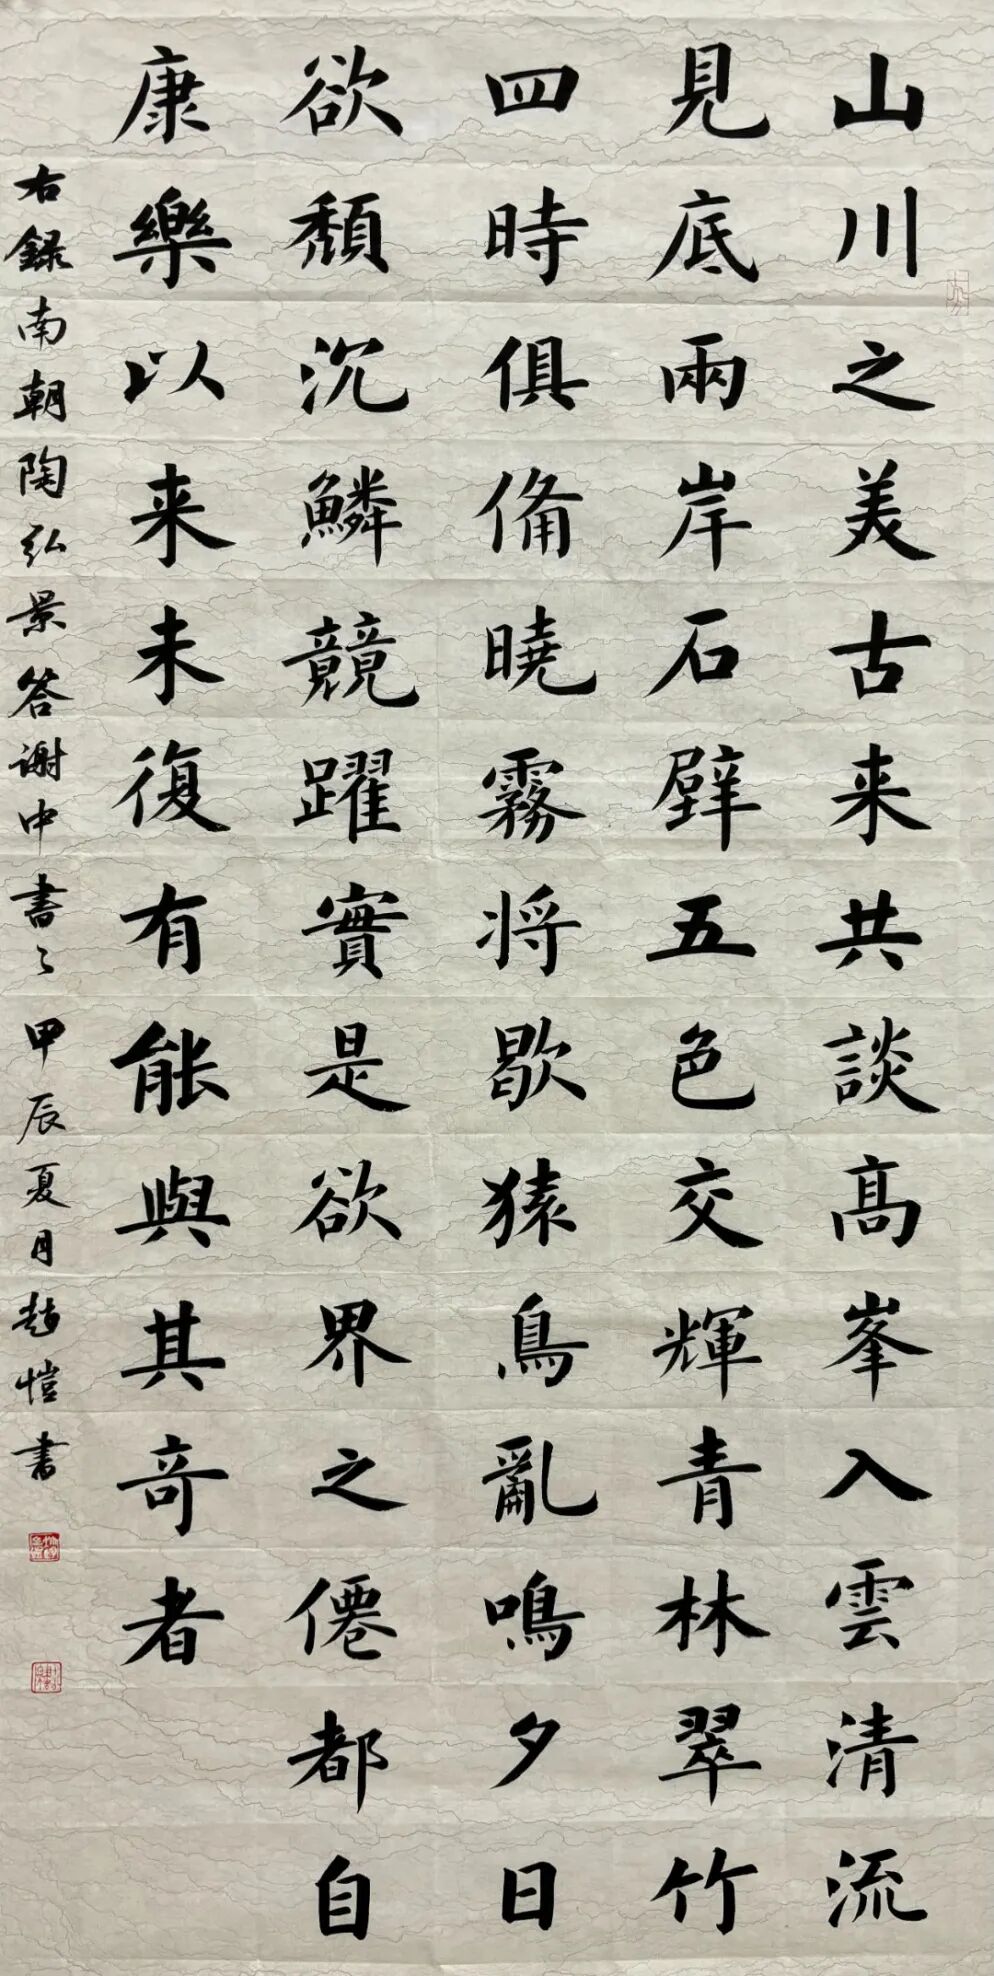 山川之美古来共談高峯入雲清流
見底兩岸石壁五色交輝青林翠竹
四時俱備曉霧將歇猿鳥亂鳴夕日
欲頹沉鱗競躍實是欲界之僊都自
康樂以来未復有能與其奇者
右錄南朝陶弘景答謝中書之甲辰夏月趙愷書